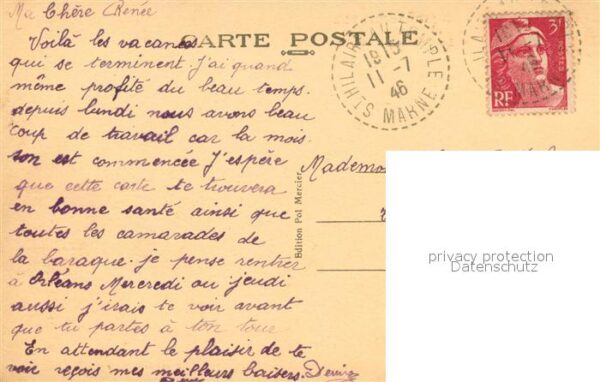 Ma Chère Renée
Voilà les vacances
qui se terminent. J'ai quand
même profité du beau temps.
depuis lundi nous avons beau
coup de travail car la mois.
son est commencée J'espère
que cette carte te trouvera
en bonne santé ainsi que
toutes les camarades de
la baraque. je pense rentrer
à Orléans Mercredi ou jeudi
aussi j'irais te voir avant
que tu partes à ton tour
En attendant le plaisir de te
voir reçois mes meilleurs baisers.
CARTE POSTALE
ST HILAIRE TEMPLE
11-7
46
MARNE
3F
RF
POSTES
MARNE
Mademo
Edition Pol Mercier
privacy protection
Datenschutz